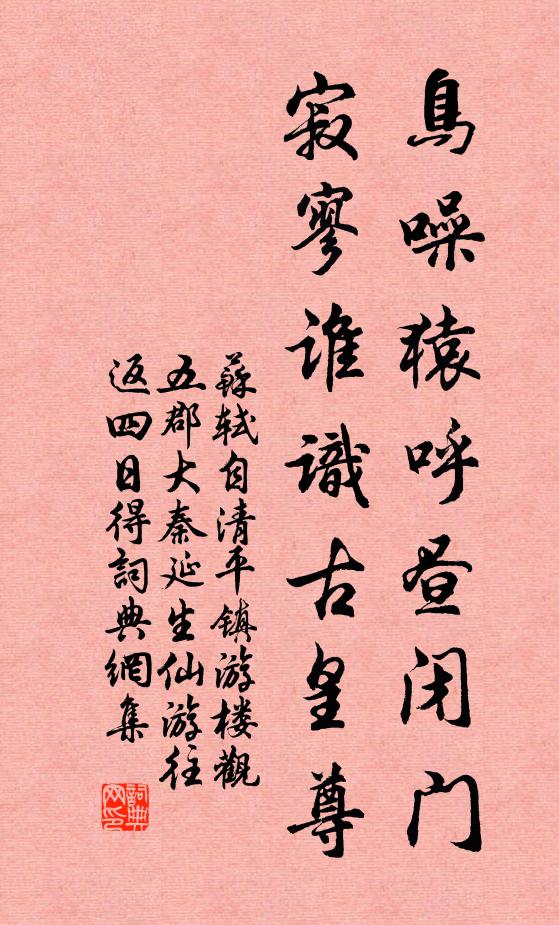 鳥噪猿呼昼闭门
寂寥谁識古皇尊
蘇轼自清平鎮游楼觀
五郡大秦延生仙游往
返四日得詞典網集
詞典
网印